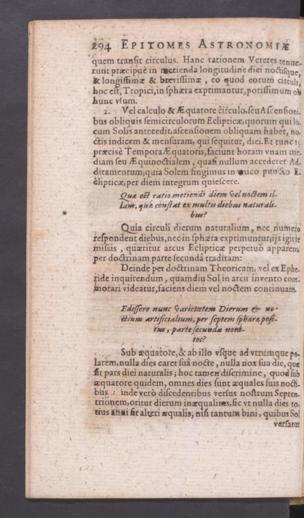 294 EPITOMES ASTRONOMIÆ
quem transit circulus. Hanc rationem Veteres tenue-
runt præcipuè in metienda longitudine diei noctisque,
& longissimæ & brevissimæ, eo quod eorum circuli,
hoc est, Tropici, in sphæra exprimantur, potissimum ob
hunc usum.
2. Vel calculo & Æquatore circulo, seu Ascensioni-
bus obliquis semicirculorum Eclipticæ, quorum qui lo-
cum Solis antecedit, ascensionem obliquam habet, no-
ctis indicem & mensuram, qui sequitur, diei. Et tunc si
præcisè Tempora Æquatoris, faciunt horam unam me-
diam seu Æquinoctialem, quasi nullum accederet Ad-
ditamentum, quia Solem fingimus in unico puncto E-
clipticæ, per diem integrum quiescere.
Quæ est ratio metiendi diem vel noctem il-
lam, quæ constat ex multis diebus natural-
bus?
Quia circuli dierum naturalium, nec numero
respondent diebus, nec in sphæra exprimuntur, ijs igitur
missis, quæritur arcus Eclipticæ perpetuò apparens,
per doctrinam parte secunda traditam:
Deinde per doctrinam Theoricam, vel ex Ephe-
ride inquirendum, quamdiu Sol in arcu invento com-
morari videatur, faciens diem vel noctem continuam.
Edissere nunc varietatem Dierum & no-
ctium artificialium, per septem sphæræ posi-
tus, parte secunda moni-
tos?
Sub æquatore, & ab illo vsque ad vtrumque po-
larem, nulla dies caret sua nocte, nulla nox sua die, quæ
sit pars diei naturalis; hoc tamen discrimine, quod sub
æquatore quidem, omnes dies sunt æquales suis nocti-
bus: inde verò discedentibus versus nostrum Septen-
trionem, oritur dierum inæqualitas, sic vt nulla dies to-
tius anni sit alteri æqualis, nisi tantum bini, quibus Sol
versatur